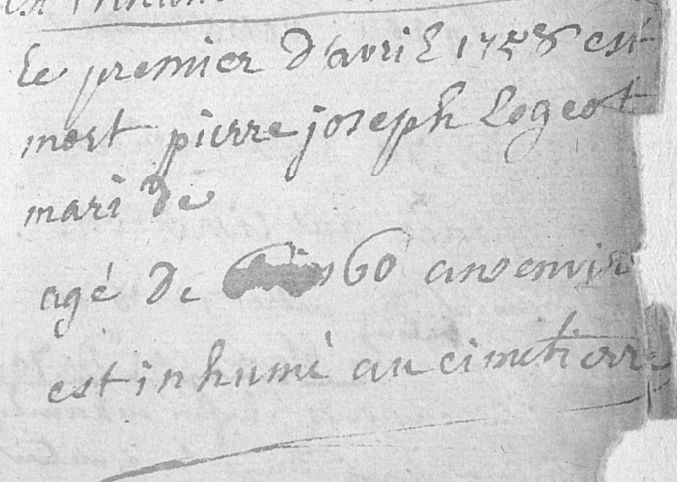 le premier d'avril 1758 est
mort pierre joseph Logeot
mari de
agé de 60 ans envir
est inhumé au cimetierre